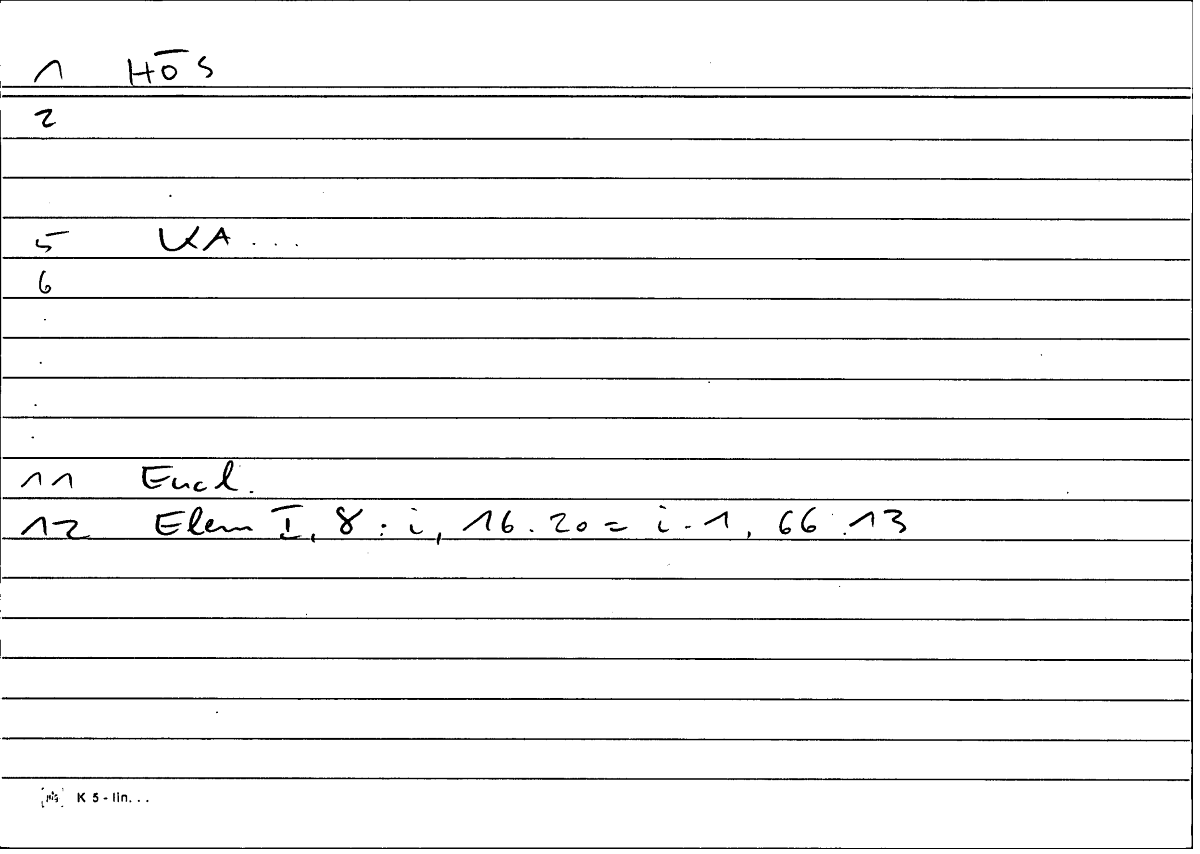 1 Hōs
2
5 KA ...
6
.
.
.
.
11 Eucl.
12 Elem I, 8 : i, 16.20 = i-1, 66.13
K 5 - lin. . .